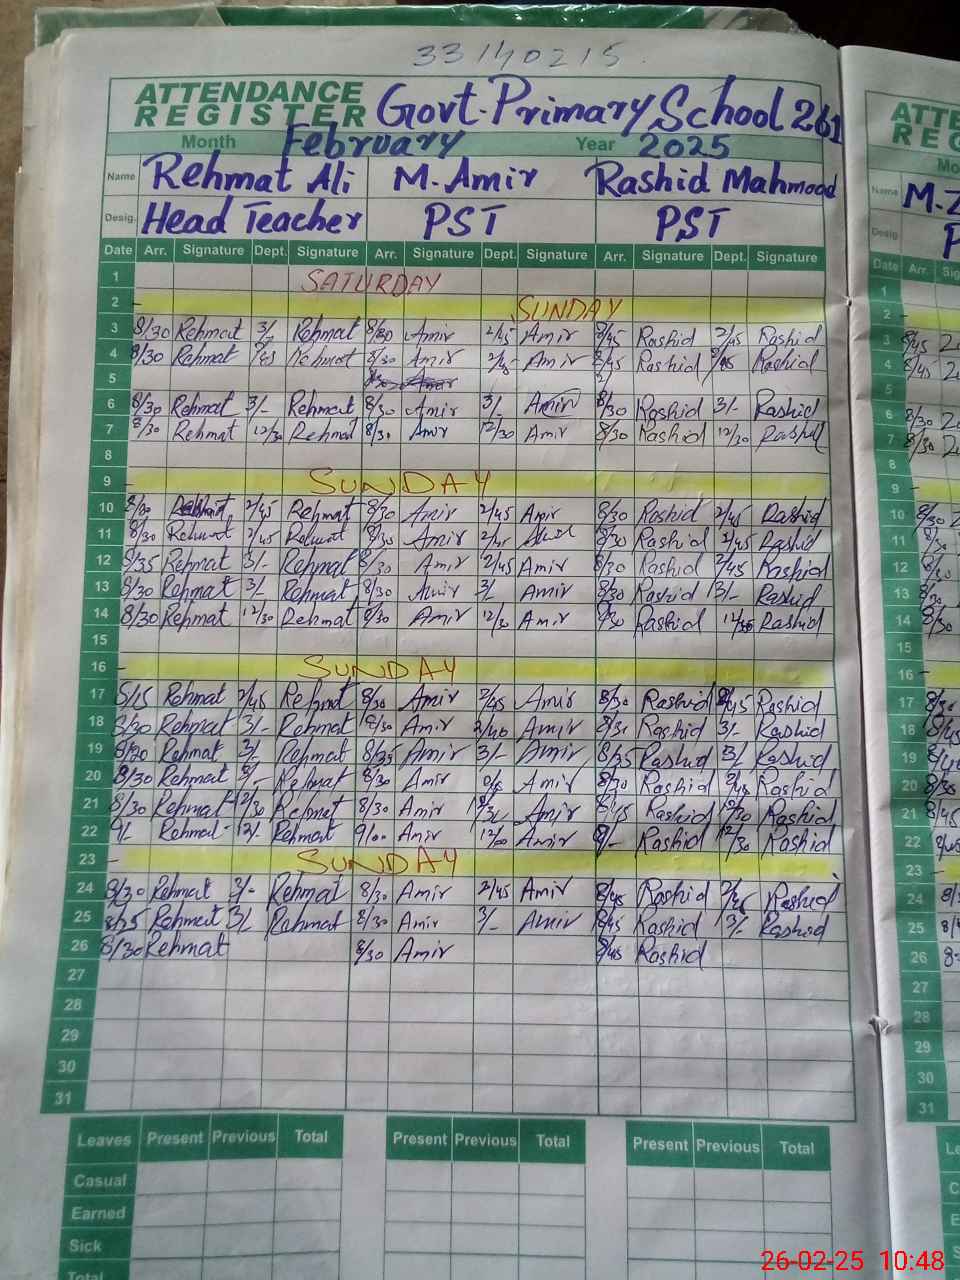 33140215
ATTENDANCE
REGISTER Govt. Primary School 261
Month February Year 2025
Name Rehmat Ali M. Amir Rashid Mahmood
Desig. Head Teacher PST PST
Date Arr. Signature Dept. Signature Arr. Signature Dept. Signature Arr. Signature Dept. Signature
1 SATURDAY
2 SUNDAY
3 8/30 Rehmat 3/- Rehmat 8/30 Amir 2/45 Amir 8/45 Rashid 2/45 Rashid
4 8/30 Rehmat 2/45 Rehmat 8/30 Amir 2/45 Amir 8/45 Rashid 2/45 Rashid
5
6 8/30 Rehmat 3/- Rehmat 8/30 Amir 3/- Amir 8/30 Rashid 3/- Rashid
7 8/30 Rehmat 12/30 Rehmat 8/30 Amir 12/30 Amir 8/30 Rashid 12/30 Rashid
8
9 SUNDAY
10 8/30 2/45 Rehmat 8/30 Amir 2/45 Amir 8/30 Rashid 2/45 Rashid
11 8/30 Rehmat 2/45 Rehmat 8/30 Amir 2/45 8/30 Rashid 2/45 Rashid
12 8/35 Rehmat 3/- Rehmat 8/30 Amir 2/45 Amir 8/30 Rashid 2/45 Rashid
13 8/30 Rehmat 3/- Rehmat 8/30 Amir 3/- Amir 8/30 Rashid 3/- Rashid
14 8/30 Rehmat 12/30 Rehmat 8/30 Amir 12/30 Amir 8/30 Rashid 12/30 Rashid
15
16 SUNDAY
17 8/15 Rehmat 2/45 Rehmat 8/30 Amir 2/45 Amir 8/30 Rashid 2/45 Rashid
18 8/30 Rehmat 3/- Rehmat 8/30 Amir 2/40 Amir 8/30 Rashid 3/- Rashid
19 8/30 Rehmat 3/- Rehmat 8/35 Amir 3/- Amir 8/35 Rashid 3/- Rashid
20 8/30 Rehmat 3/- Rehmat 8/30 Amir Amir 8/30 Rashid 2/45 Rashid
21 8/30 Rehmat 12/30 Rehmat 8/30 Amir 12/30 Amir 8/45 Rashid 12/30 Rashid
22 9/- Rehmat 12/- Rehmat 9/00 Amir 12/00 Amir 9/- Rashid 12/30 Rashid
23 SUNDAY
24 8/30 Rehmat 3/- Rehmat 8/30 Amir 2/45 Amir 8/45 Rashid 2/45 Rashid
25 8/25 Rehmat 3/- Rehmat 8/30 Amir 3/- Amir 8/45 Rashid 3/- Rashid
26 8/30 Rehmat 8/30 Amir 8/45 Rashid
27
28
29
30
31
Leaves Present Previous Total Present Previous Total Present Previous Total
Casual
Earned
Sick
Total
26-02-25 10:48